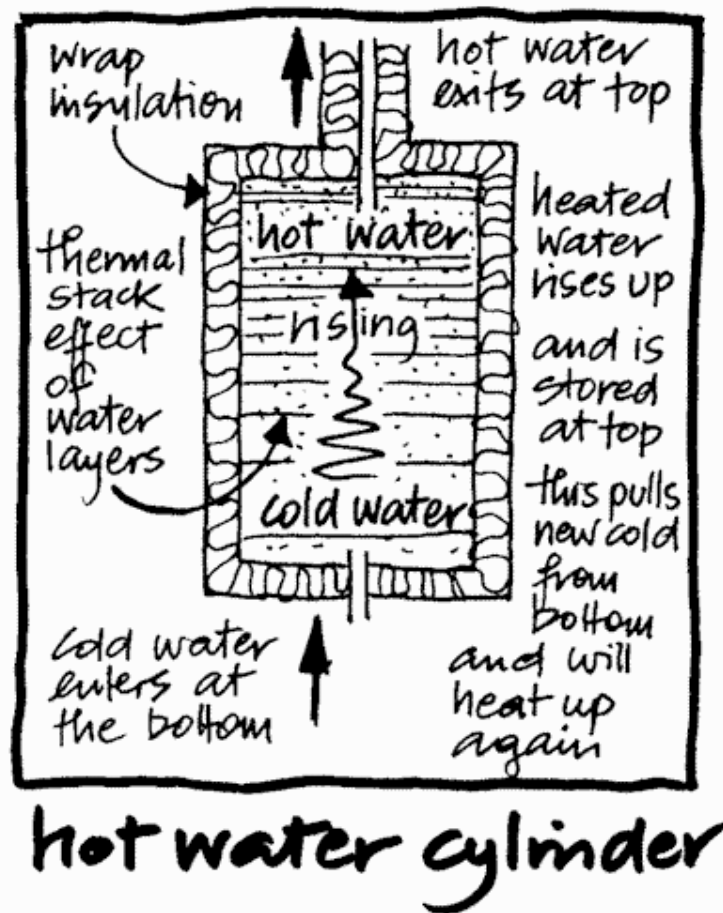 wrap
insulation
hot water
exits at top
thermal
stack
effect
of
water
layers
hot water
rising
cold water
heated
water
rises up
and is
stored
at top
this pulls
new cold
from
bottom
and will
heat up
again
cold water
enters at
the bottom
hot water cylinder